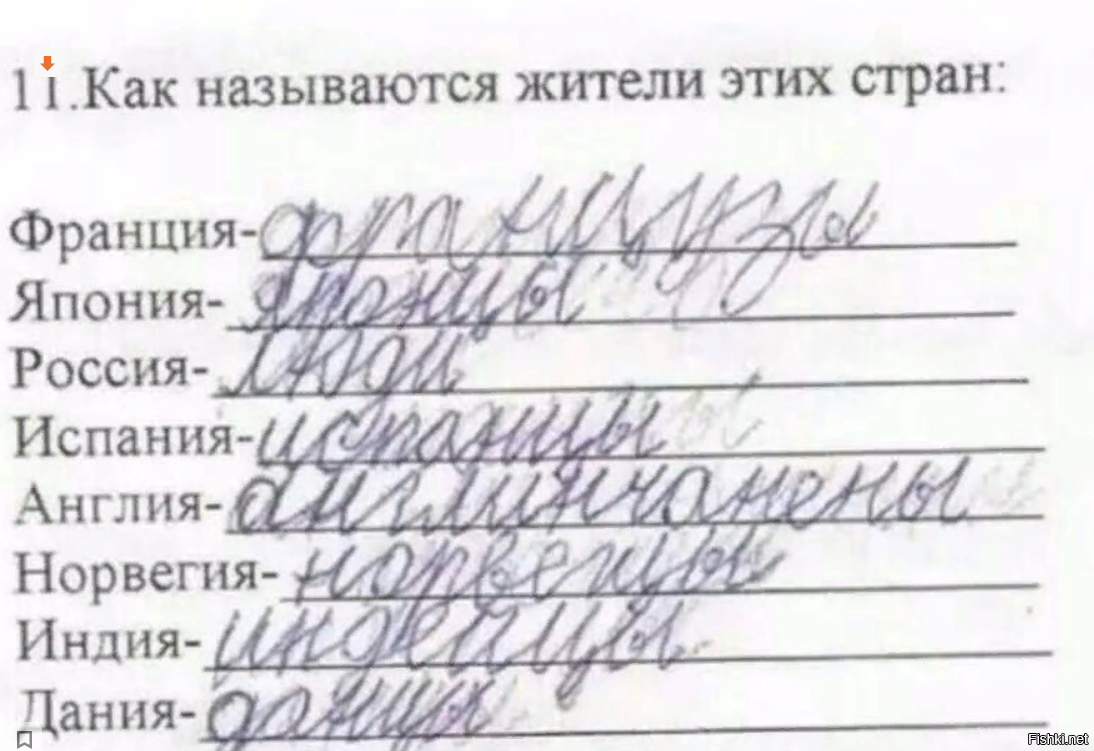 11.Как называются жители этих стран:
Франция-французы
Япония-японцы
Россия-люди
Испания-испанцы
Англия-англинчанены
Норвегия-норвегцы
Индия-индейцы
Дания-данцы
Fishki.net